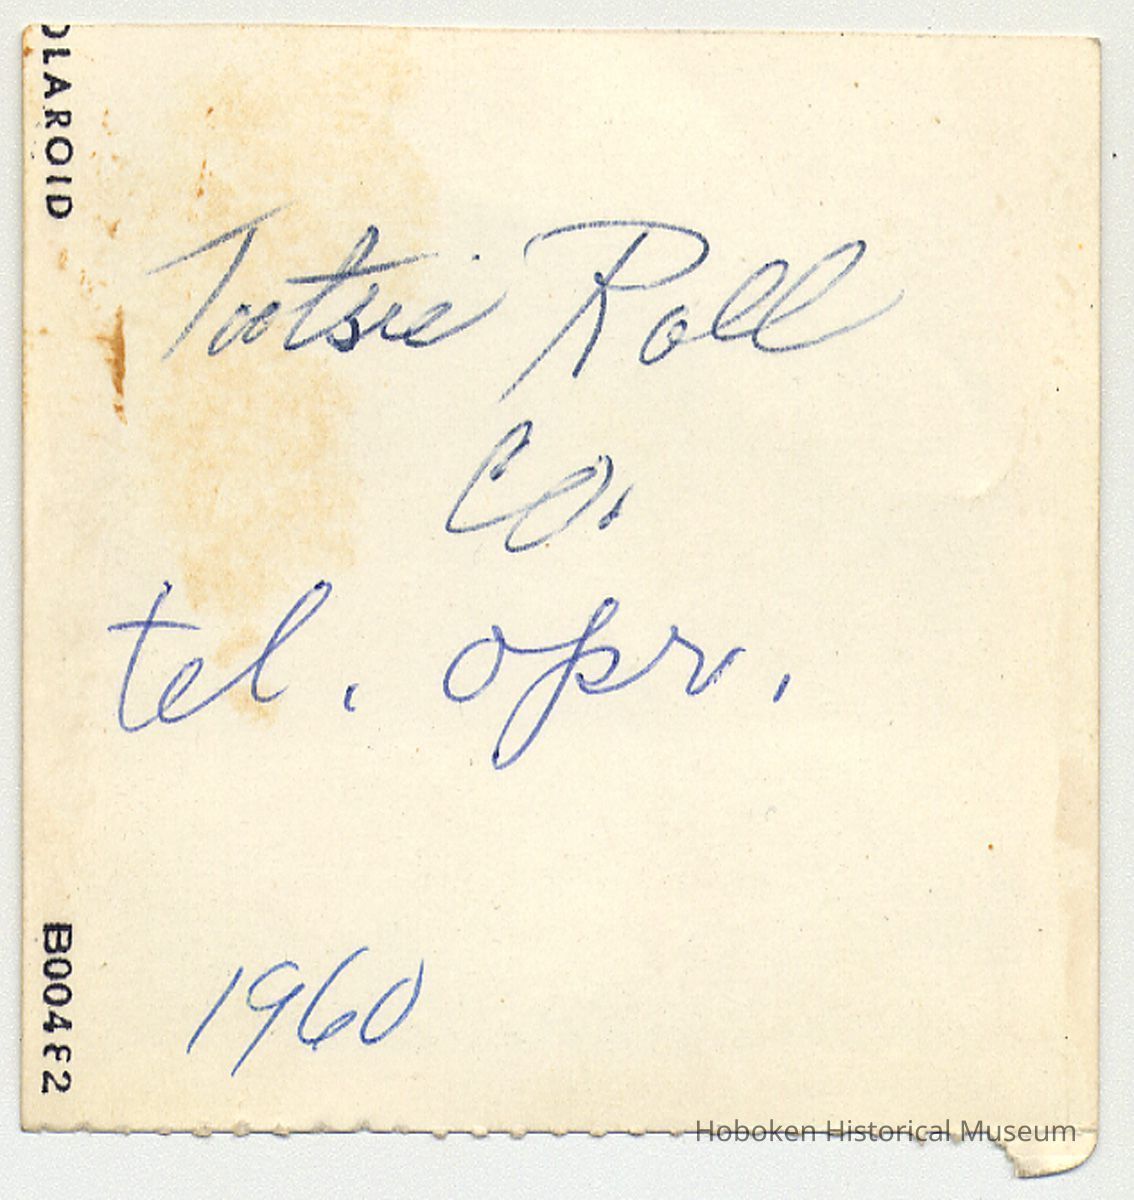 OLAROID
Tootsie Roll
Co.
tel. opr.
1960
Hoboken Historical Museum